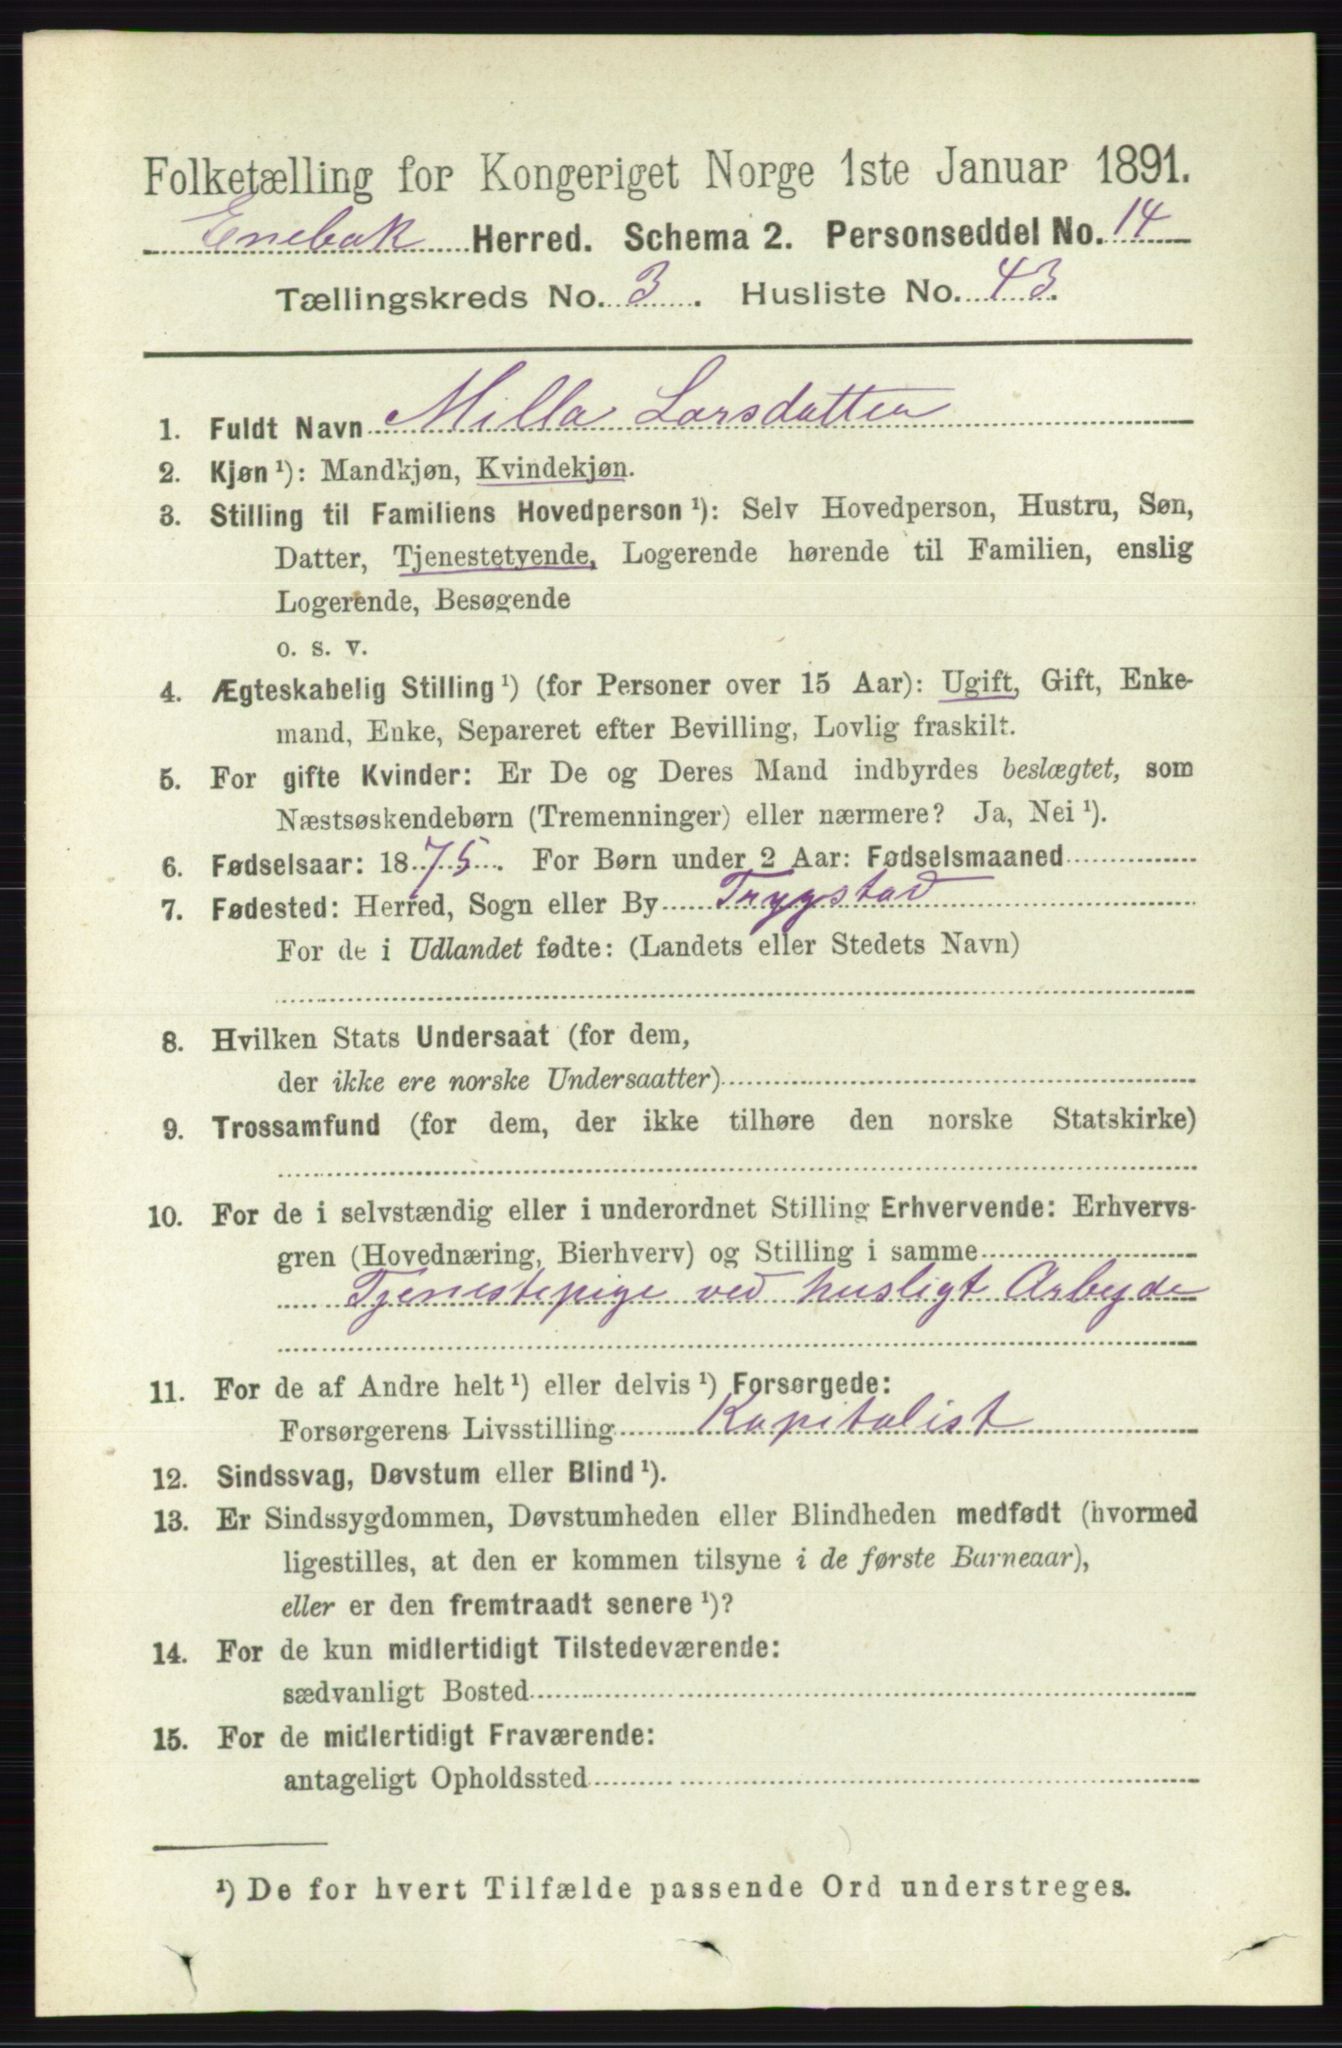 Folketælling for Kongeriget Norge 1ste Januar 1891.
Enebak Herred. Schema 2. Personseddel No. 14
Tællingskreds No. 3. Husliste No. 43.
1. Fuldt Navn Milla Larsdatter
2. Kjøn ¹): Mandkjøn, Kvindekjøn.
3. Stilling til Familiens Hovedperson ¹): Selv Hovedperson, Hustru, Søn,
Datter, Tjenestetyende, Logerende hørende til Familien, enslig
Logerende, Besøgende
o. s. v.
4. Ægteskabelig Stilling ¹) (for Personer over 15 Aar): Ugift, Gift, Enke-
mand, Enke, Separeret efter Bevilling, Lovlig fraskilt.
5. For gifte Kvinder: Er De og Deres Mand indbyrdes beslægtet, som
Næstsøskendebørn (Tremenninger) eller nærmere? Ja, Nei ¹).
6. Fødselsaar: 1875. For Børn under 2 Aar: Fødselsmaaned
7. Fødested: Herred, Sogn eller By Trygstad
For de i Udlandet fødte: (Landets eller Stedets Navn)
8. Hvilken Stats Undersaat (for dem,
der ikke ere norske Undersaatter)
9. Trossamfund (for dem, der ikke tilhøre den norske Statskirke)
10. For de i selvstændig eller i underordnet Stilling Erhvervende: Erhvervs-
gren (Hovednæring, Bierhverv) og Stilling i samme
Tjenestepige ved husligt Arbeyde
11. For de af Andre helt ¹) eller delvis ¹) Forsørgede:
Forsørgerens Livsstilling Kapitalist
12. Sindssvag, Døvstum eller Blind ¹).
13. Er Sindssygdommen, Døvstumheden eller Blindheden medfødt (hvormed
ligestilles, at den er kommen tilsyne i de første Barneaar),
eller er den fremtraadt senere ¹)?
14. For de kun midlertidigt Tilstedeværende:
sædvanligt Bosted
15. For de midlertidigt Fraværende:
antageligt Opholdssted
¹) De for hvert Tilfælde passende Ord understreges.